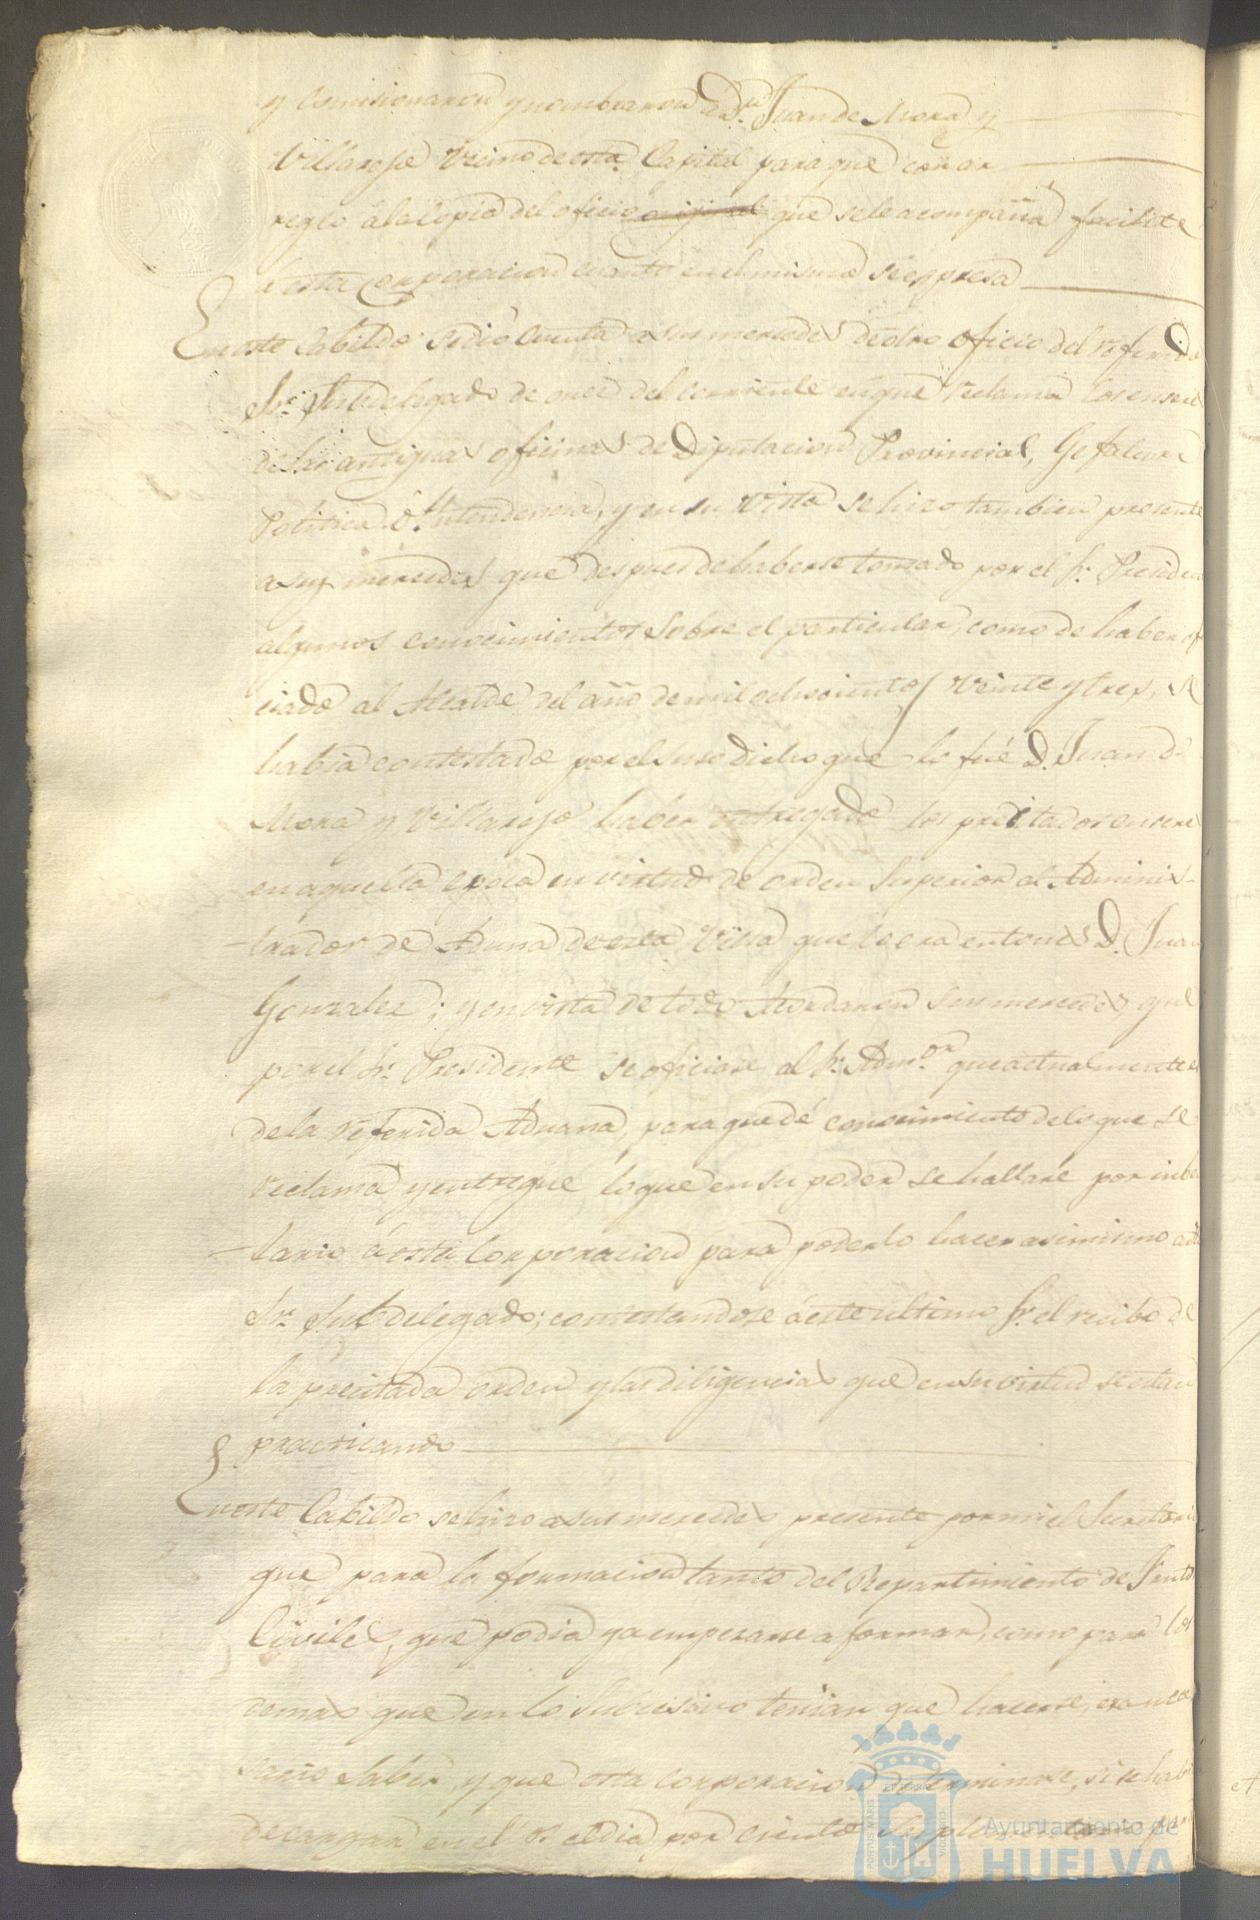 y Comisionaron y nombraron a Dn. Juan de Mora y
Villarojo Vecino de esta Capital para que con ar
reglo á la copia del oficio original que se le acompaña facilite
a esta Corporacion cuanto en el mismo se espresa
En este Cabildo se dió Cuenta a sus mercedes de otro oficio del referido
Sr. Subdelegado de once del corriente en que reclama los enseres
de las antiguas oficinas de Diputacion Provincial, Gefatura
Politica é Yntendencia, y en su vista se hizo tambien presente
a sus mercedes que despues de haberse tomado por el Sr. Presiden
algunos conocimientos sobre el particular, como de haber ofi
ciado al Alcalde del año de mil ochocientos veinte y tres, se
habia contestado por el suso dicho que lo fué D. Juan de
Mora y Villarojo haber entregado los precitados ensere
en aquella epoca en virtud de orden Superior al Adminis-
trador de Aduna de esta Villa que lo era entonces D. Juan
Gonzalez; y en vista de todo Acordaron sus mercedes que
por el Sr. Presidente se oficiase al Sr. Admor. que actualmente es
de la referida Aduana, para que dé conocimiento de lo que se
reclama y entregue lo que en su poder se hallare por inben
tario á esta Corporacion para poderlo hacer asimismo a
Sr. Subdelegado; contestandose á este ultimo Sr. el recibo de
la precitada orden y las diligencias que en su virtud se estan
practicando
En este Cabildo se hizo a sus mercedes presente por mi el Secretario
que para la formacion tanto del Repartimiento de Frutos
Civiles, que podia ya empezarse a formar, como para los
demas que en lo subcesivo tenian que hacerse, era nece
sario saber, y que esta corporacion determinase, si se hab
de cargar en el por ciento
Ayuntamiento de
HUELVA